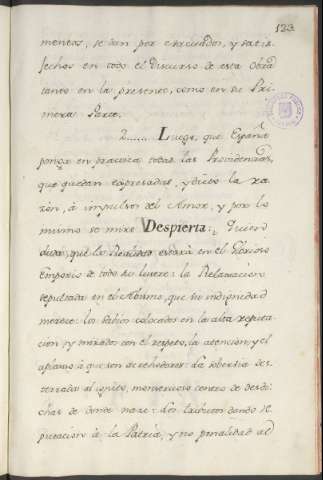 123
mentos, se dan por evacuados, y satis-
fechos en todo el Discurso de esta Obra
tanto en la presente, como en su Pri-
mera Parte.
2...... Luego, que España
ponga en practica todas las Providencias,
que quedan expresadas, y dicto la ra-
zòn, à impulsos del Amor, y por lo
mismo se mire Despierta:
duda, que la Realidad estarà en el Glorioso
Emporio de todo su lustre: la Relaxacion
sepultada en el Abismo, que su indignidad
merece: los Sabios colocados en la alta reputa-
cion, y mirados con el respeto, la atencion, y el
aplauso à que son acrehedores: La sobervia des-
terrada al ignito, monstruoso centro de desdi-
chas de donde nace: Los tributos dando re-
putacion à la Patria, y no penalidad al